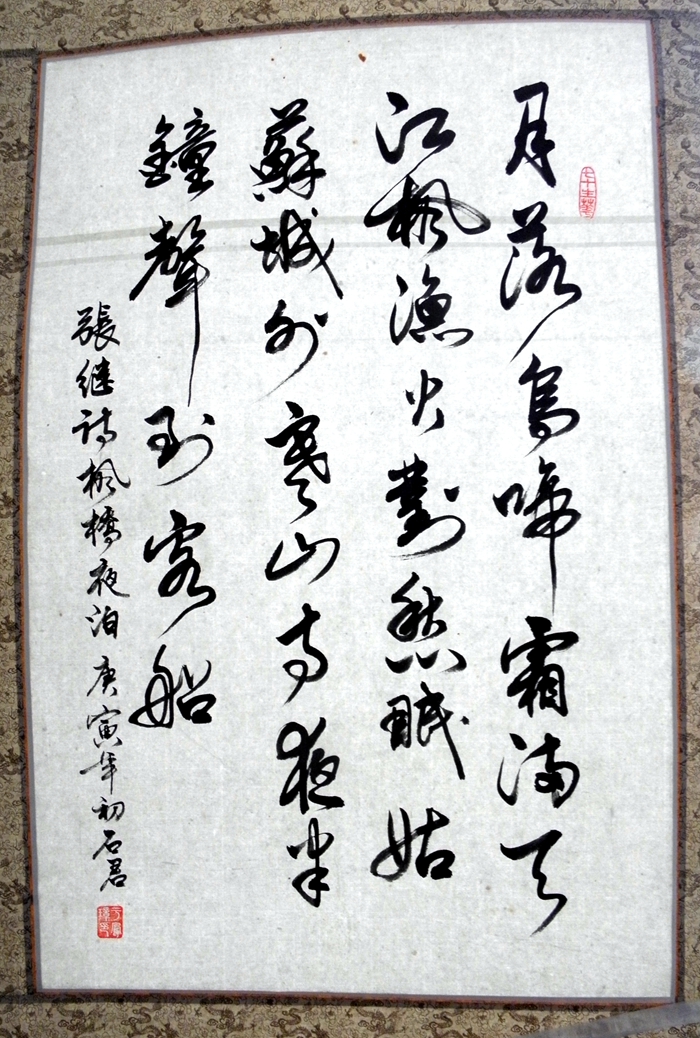 月落烏啼霜满天
江枫漁火對愁眠姑
蘇城外寒山寺夜半
鐘聲到客船
張继诗枫橋夜泊庚寅年初石君